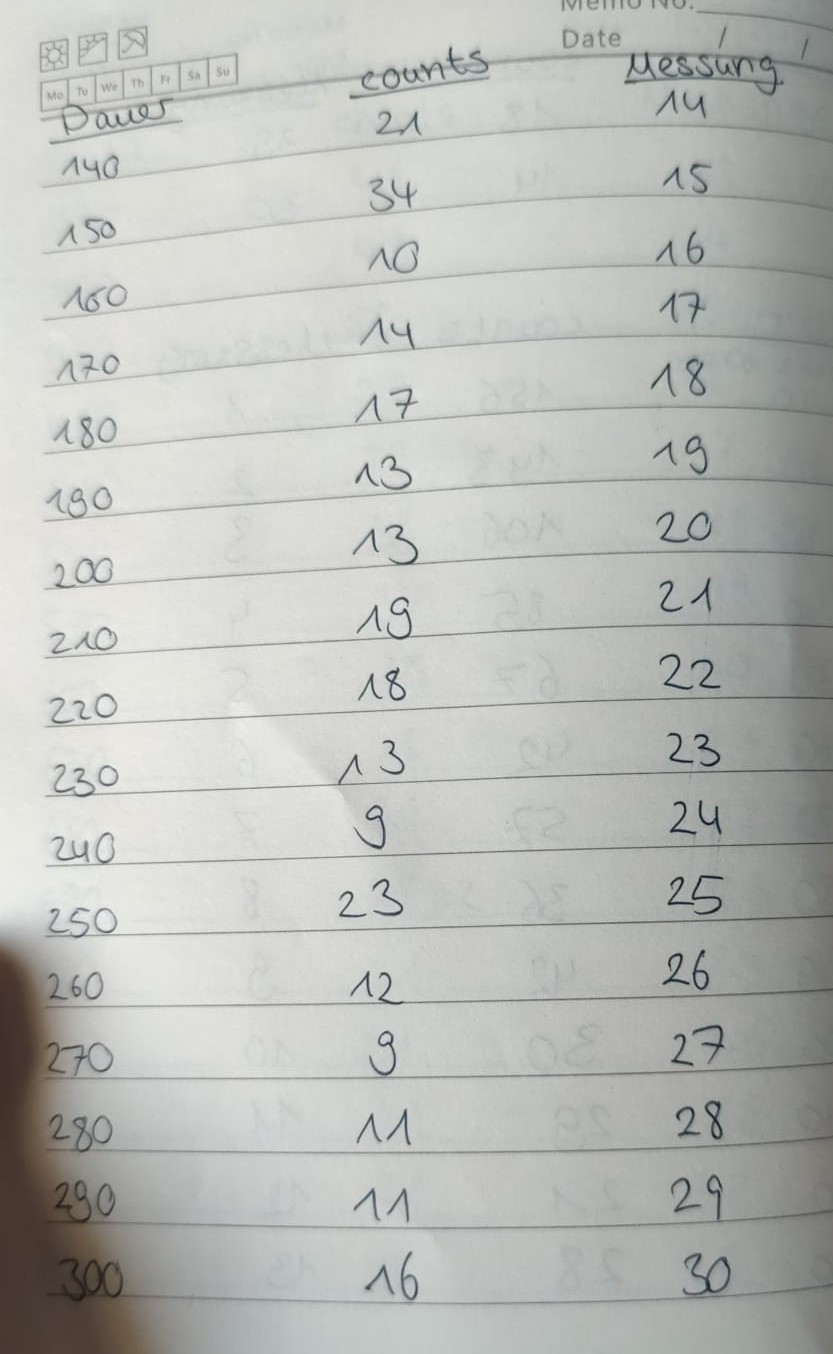 Memo No.
Date / /
Mo Tu We Th Fr Sa Su
Dauer counts Messung
140 21 14
150 34 15
160 10 16
170 14 17
180 17 18
190 13 19
200 13 20
210 19 21
220 18 22
230 13 23
240 9 24
250 23 25
260 12 26
270 9 27
280 11 28
290 11 29
300 16 30